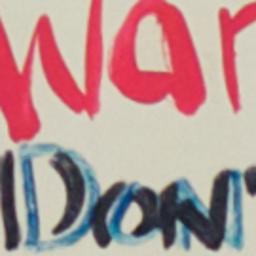 War
Don'